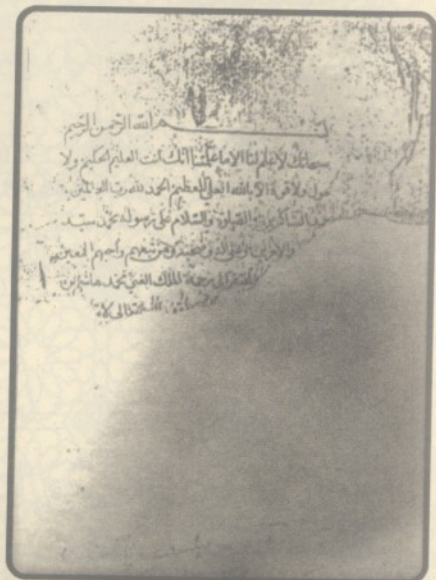 بسم الله الرحمن الرحيم
سبحانك لا علم لنا الا ما علمتنا انك انت العليم الحكيم ولا
حول ولا قوة الا بالله العلي العظيم الحمد لله رب العالمين
والصلوة والسلام على رسوله محمد سيد
والاخرين وعلى اله وصحبه ومن تبعهم واحبهم اجمعين
المفتقر الى رحمة الملك الغني محمد هاشم بن